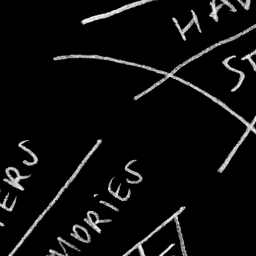 HAV
ST
ERS
MORIES